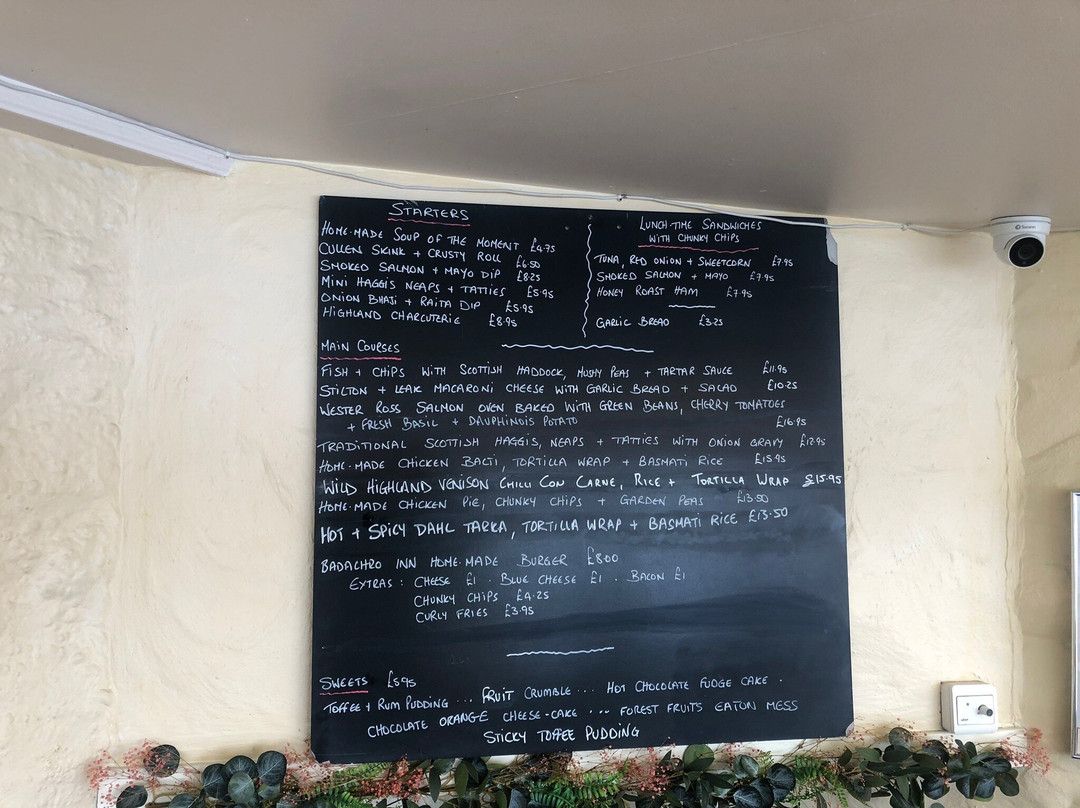 STARTERS
HOME-MADE SOUP OF THE MOMENT £4.75
CULLEN SKINK + CRUSTY ROLL £6.50
SMOKED SALMON + MAYO DIP £8.25
MINI HAGGIS NEAPS + TATTIES £5.95
ONION BHAJI + RAITA DIP £5.95
HIGHLAND CHARCUTERIE £8.95
LUNCH-TIME SANDWICHES
WITH CHUNKY CHIPS
TUNA, RED ONION + SWEETCORN £7.95
SMOKED SALMON + MAYO £7.95
HONEY ROAST HAM £7.95
GARLIC BREAD £3.25
MAIN COURSES
FISH + CHIPS WITH SCOTTISH HADDOCK, MUSHY PEAS + TARTAR SAUCE £11.95
STILTON + LEAK MACARONI CHEESE WITH GARLIC BREAD + SALAD £10.25
WESTER ROSS SALMON OVEN BAKED WITH GREEN BEANS, CHERRY TOMATOES
+ FRESH BASIL + DAUPHINOIS POTATO £16.95
TRADITIONAL SCOTTISH HAGGIS, NEAPS + TATTIES WITH ONION GRAVY £12.95
HOME-MADE CHICKEN BALTI, TORTILLA WRAP + BASMATI RICE £15.95
WILD HIGHLAND VENISON CHILLI CON CARNE, RICE + TORTILLA WRAP £15.95
HOME-MADE CHICKEN PIE, CHUNKY CHIPS + GARDEN PEAS £13.50
HOT + SPICY DAHL TARKA, TORTILLA WRAP + BASMATI RICE £13.50
BADACHRO INN HOME-MADE BURGER £8.00
EXTRAS : CHEESE £1 . BLUE CHEESE £1 . BACON £1
CHUNKY CHIPS £4.25
CURLY FRIES £3.95
SWEETS £5.95
TOFFEE + RUM PUDDING ... FRUIT CRUMBLE ... HOT CHOCOLATE FUDGE CAKE .
CHOCOLATE ORANGE CHEESE-CAKE .... FOREST FRUITS EATON MESS
STICKY TOFFEE PUDDING